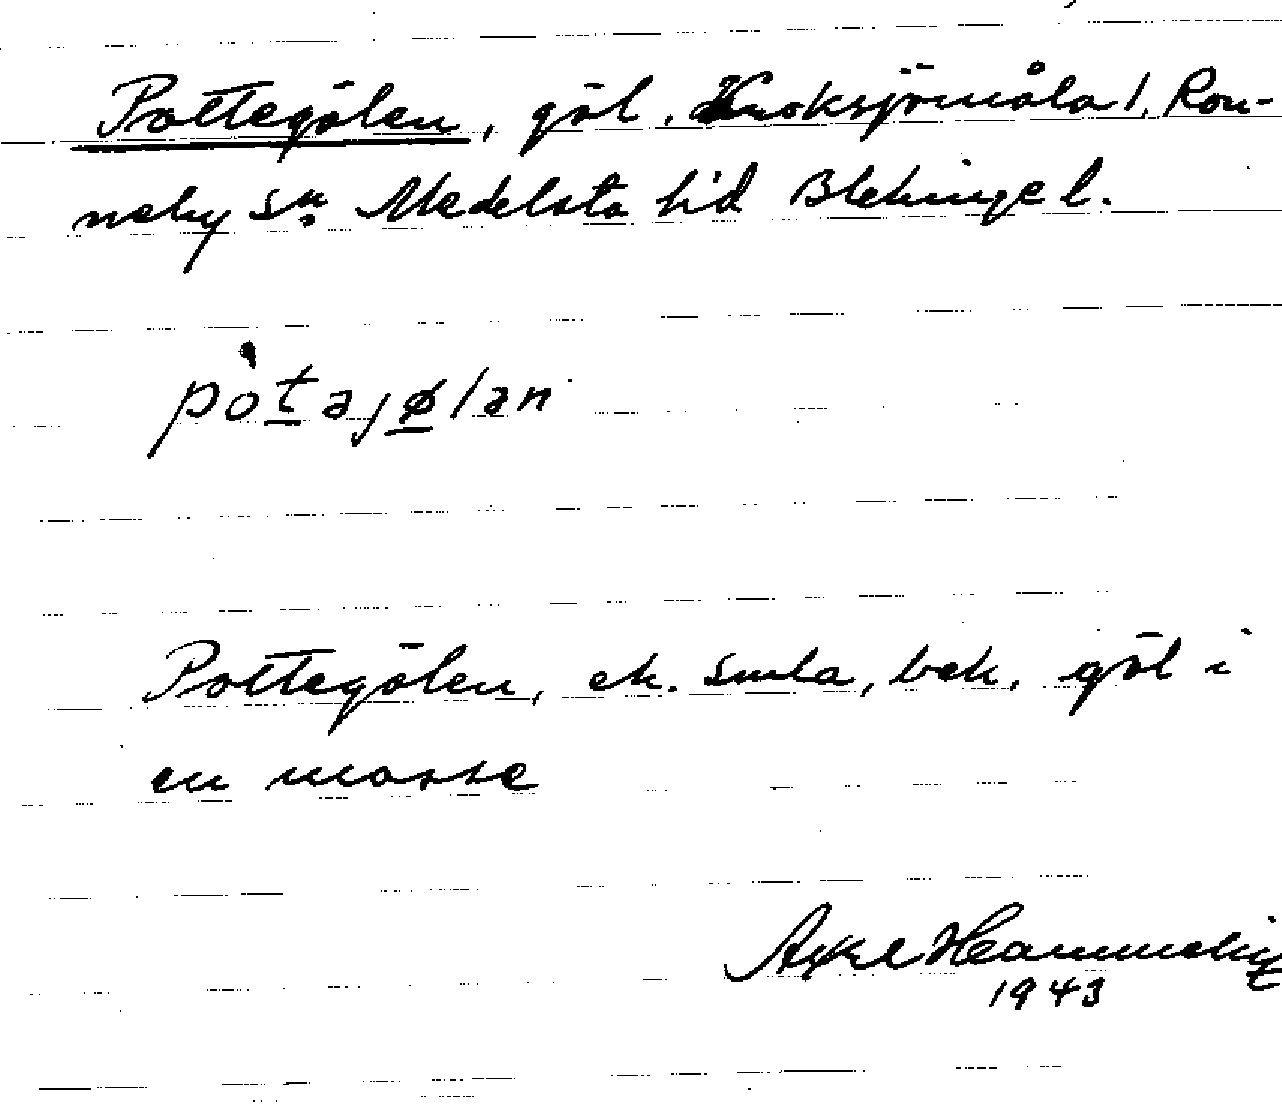 Pottegölen, göl, Kroksjömåla 1, Ron-
neby sn Medelsta hd Blekinge l.
pòtəjølən
Pottegölen, ek. Smla, bek. göl i
en mosse
Axel
1943